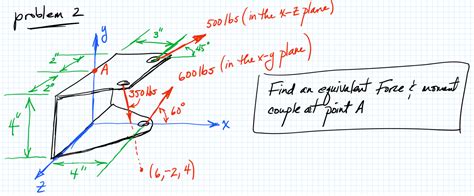 problem 2
500lbs (in the x-z plane)
y
3"
45°
600lbs (in the x-y plane)
2"
A
2"
350lbs
60°
4"
x
4"
z
(6,-2,4)
Find an equivalent Force & moment
couple at point A